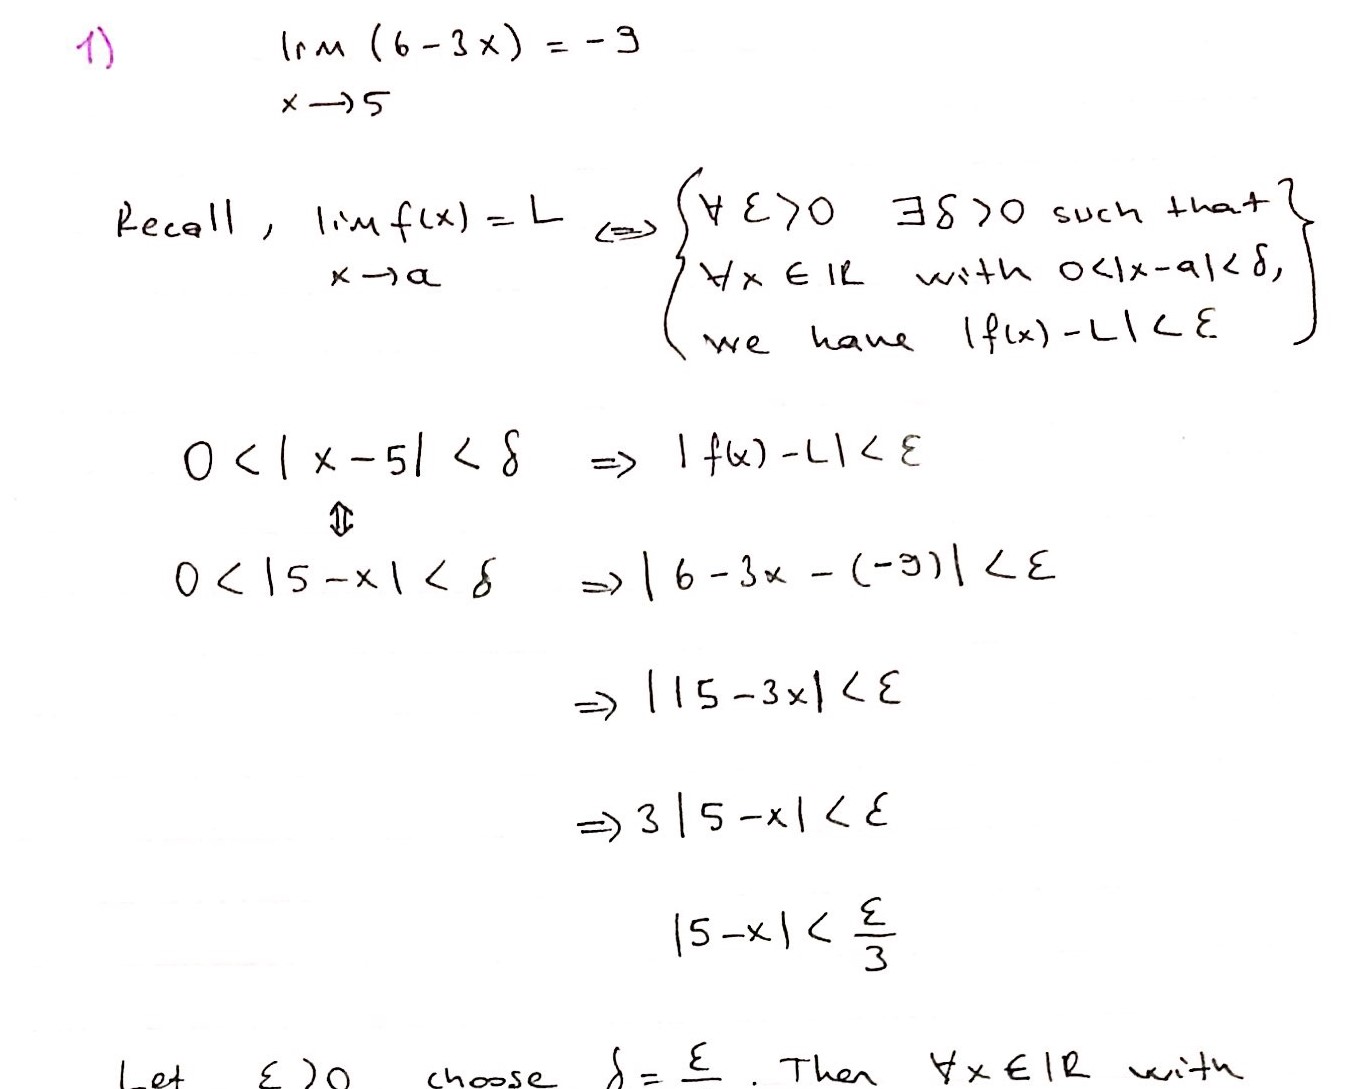 1) lim (6-3x) = -9
x→5
Recall, lim f(x) = L ⇔ { ∀ ε>0 ∃δ>0 such that }
x→a ∀x ∈ ℝ with 0<|x-a|<δ,
we have |f(x)-L|<ε
0<|x-5|<δ ⇒ |f(x)-L|<ε
⇕
0<|5-x|<δ ⇒ |6-3x-(-9)|<ε
⇒ |15-3x|<ε
⇒ 3|5-x|<ε
|5-x|< ε/3
Let ε>0 choose δ = ε . Then ∀x∈ℝ with